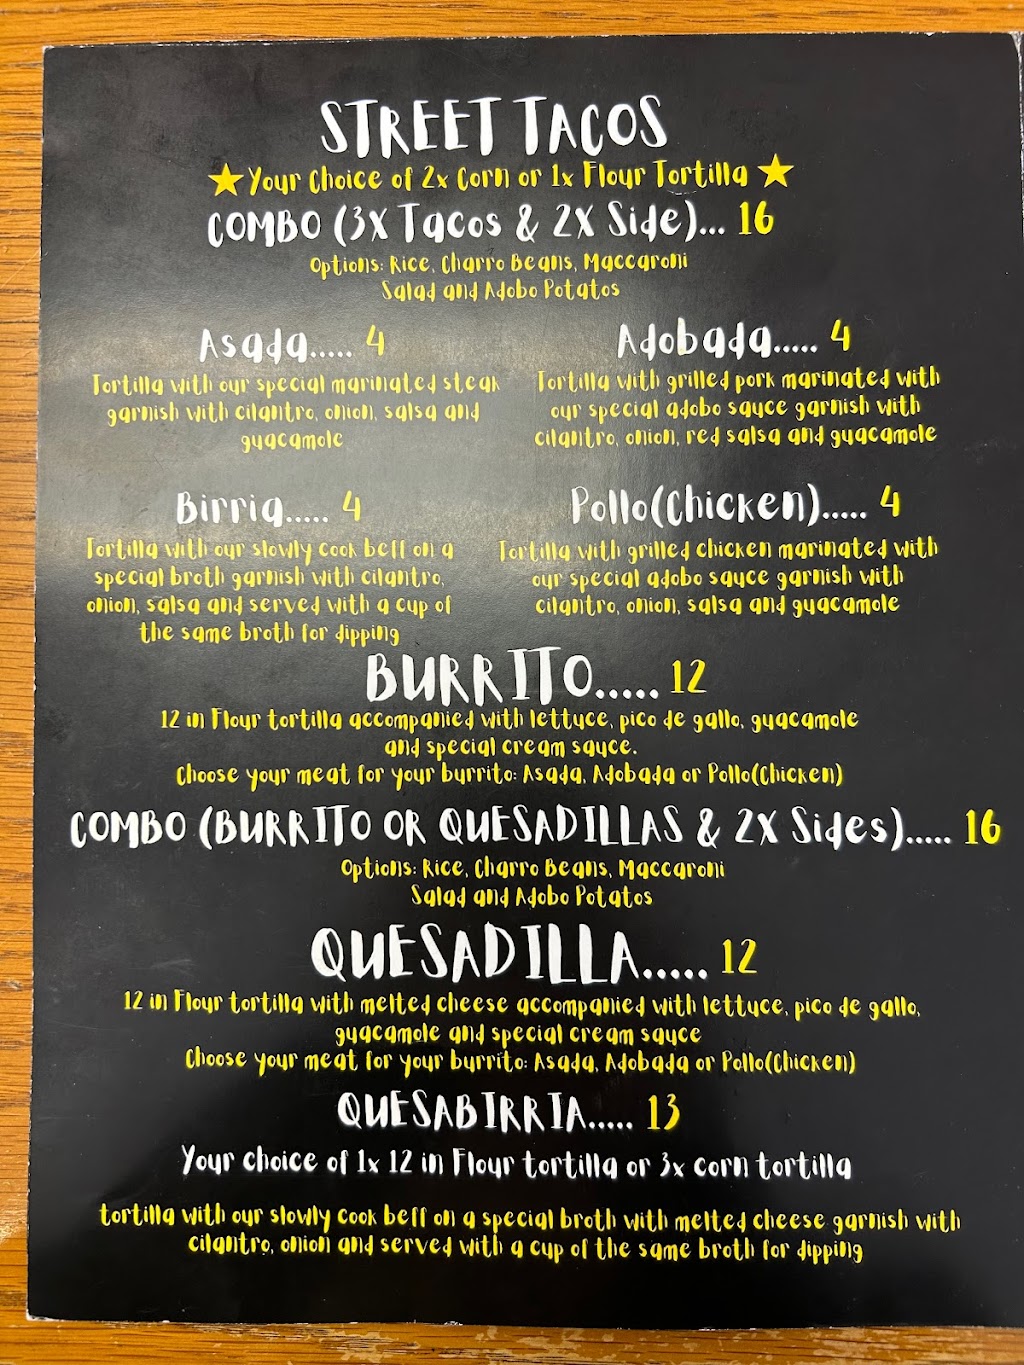 STREET TACOS
★Your Choice of 2x Corn or 1x Flour Tortilla ★
COMBO (3X Tacos & 2X Side)... 16
Options: Rice, Charro Beans, Maccaroni
Salad and Adobo Potatos
Asada..... 4
Tortilla with our special marinated steak
garnish with cilantro, onion, salsa and
guacamole
Adobada..... 4
Tortilla with grilled pork marinated with
our special adobo sauce garnish with
cilantro, onion, red salsa and guacamole
Birria..... 4
Tortilla with our slowly cook beff on a
special broth garnish with cilantro,
onion, salsa and served with a cup of
the same broth for dipping
Pollo(Chicken)..... 4
Tortilla with grilled chicken marinated with
our special adobo sauce garnish with
cilantro, onion, salsa and guacamole
BURRITO..... 12
12 in Flour tortilla accompanied with lettuce, pico de gallo, guacamole
and special cream sauce.
Choose your meat for your burrito: Asada, Adobada or Pollo(Chicken)
COMBO (BURRITO OR QUESADILLAS & 2X Sides)..... 16
Options: Rice, Charro Beans, Maccaroni
Salad and Adobo Potatos
QUESADILLA..... 12
12 in Flour tortilla with melted cheese accompanied with lettuce, pico de gallo,
guacamole and special cream sauce
Choose your meat for your burrito: Asada, Adobada or Pollo(Chicken)
QUESABIRRIA..... 13
Your choice of 1x 12 in Flour tortilla or 3x corn tortilla
tortilla with our slowly cook beff on a special broth with melted cheese garnish with
cilantro, onion and served with a cup of the same broth for dipping